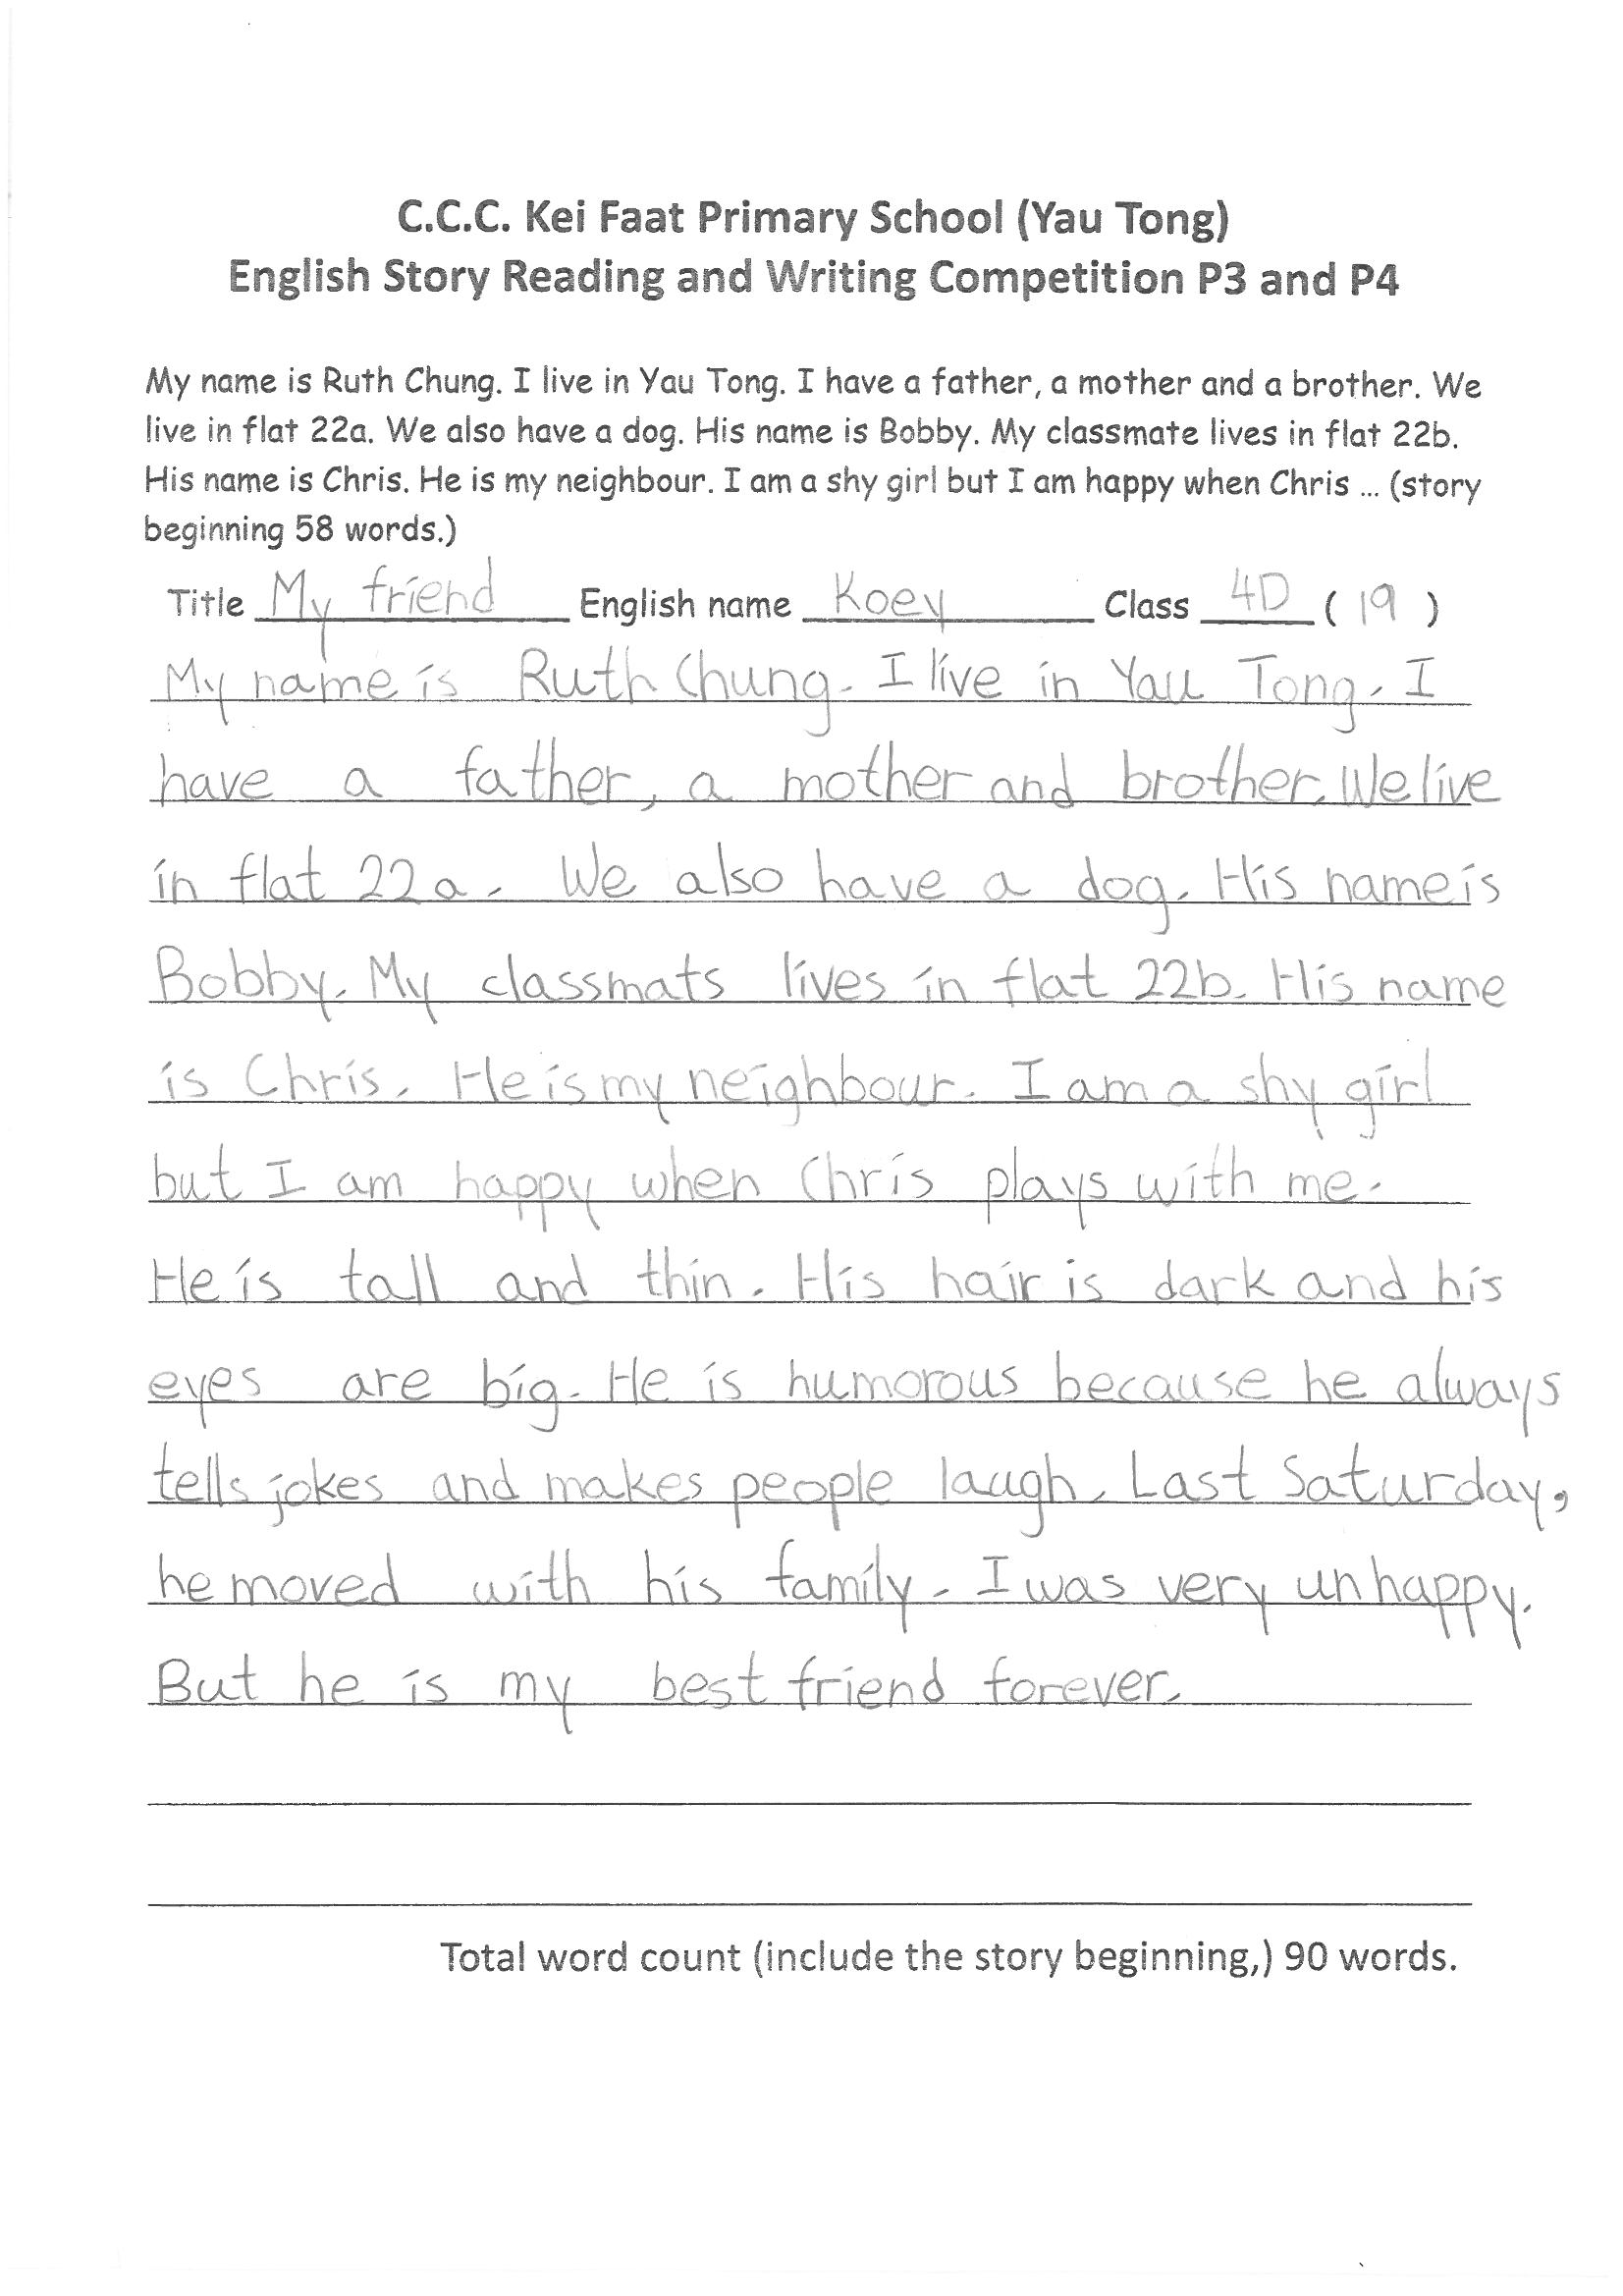 C.C.C. Kei Faat Primary School (Yau Tong)
English Story Reading and Writing Competition P3 and P4
My name is Ruth Chung. I live in Yau Tong. I have a father, a mother and a brother. We
live in flat 22a. We also have a dog. His name is Bobby. My classmate lives in flat 22b.
His name is Chris. He is my neighbour. I am a shy girl but I am happy when Chris ... (story
beginning 58 words.)
Title My friend English name Koey Class 4D ( 19 )
My name is Ruth Chung. I live in Yau Tong. I
have a father, a mother and brother. We live
in flat 22a. We also have a dog. His name is
Bobby. My classmats lives in flat 22b. His name
is Chris. He is my neighbour. I am a shy girl
but I am happy when Chris plays with me.
He is tall and thin. His hair is dark and his
eyes are big. He is humorous because he always
tells jokes and makes people laugh. Last Saturday,
he moved with his family. I was very unhappy.
But he is my best friend forever.
Total word count (include the story beginning,) 90 words.